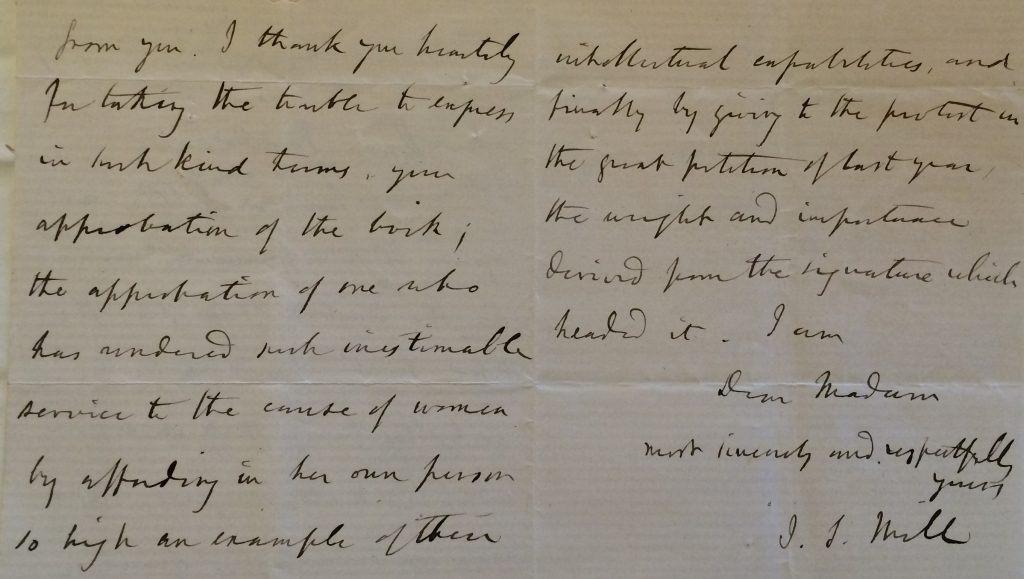 from you. I thank you heartily
for taking the trouble to express
in such kind terms, your
approbation of the book;
the approbation of one who
has rendered such inestimable
service to the cause of women
by affording in her own person
so high an example of their
intellectual capabilities, and
finally by giving to the protest in
the great petition of last year,
the weight and importance
derived from the signature which
headed it. I am
Dear Madam
most sincerely and respectfully
yours
J. S. Mill